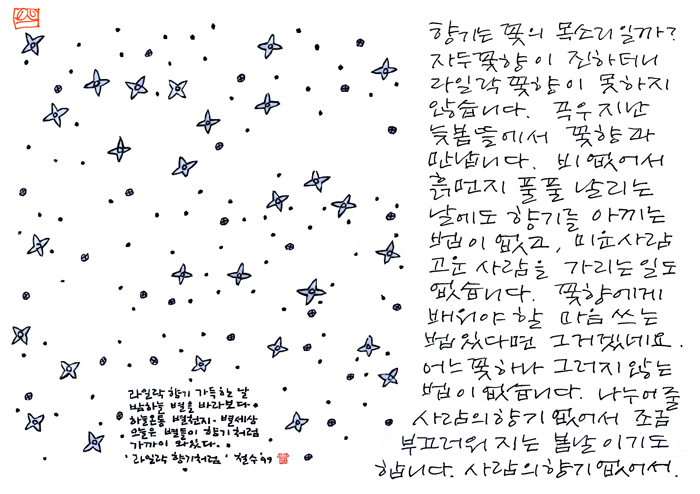 향기는 꽃의 목소리일까?
자두꽃향이 진하더니
라일락꽃향이 못하지
않습니다. 곡우지난
늦봄뜰에서 꽃향과
만납니다. 비 없어서
흙먼지 풀풀 날리는
날에도 향기를 아끼는
법이 없고, 미운사람
고운 사람을 가리는일도
없습니다. 꽃향에게
배워야 할 마음 쓰는
법있다면 그거겠네요.
어느꽃하나 그러지않는
법이 없습니다. 나누어줄
사람의향기 없어서 조금
부끄러워 지는 봄날 이기도
합니다. 사람의향기없어서.
라일락 향기 가득하는 날
밤하늘 별을 바라보다.
하늘온통 별천지. 별세상
오늘은 별들이 향기처럼
가까이 와있다.
'라일락 향기처럼' 철수 '99